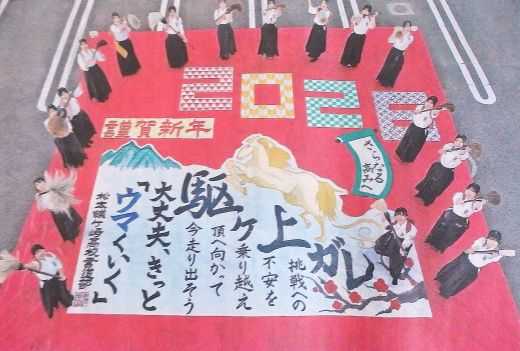 2026
謹賀新年
さらなる
高みへ
駆ケ上ガレ
挑戦への
不安を
乗り越え
頂へ向かって
今走り出そう
大丈夫、きっと
「ウマくいく」
松本蟻ヶ崎高校書道部